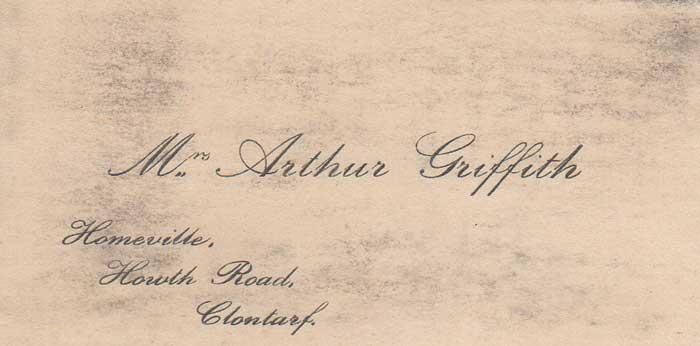 Mrs Arthur Griffith
Homeville,
Howth Road,
Clontarf.